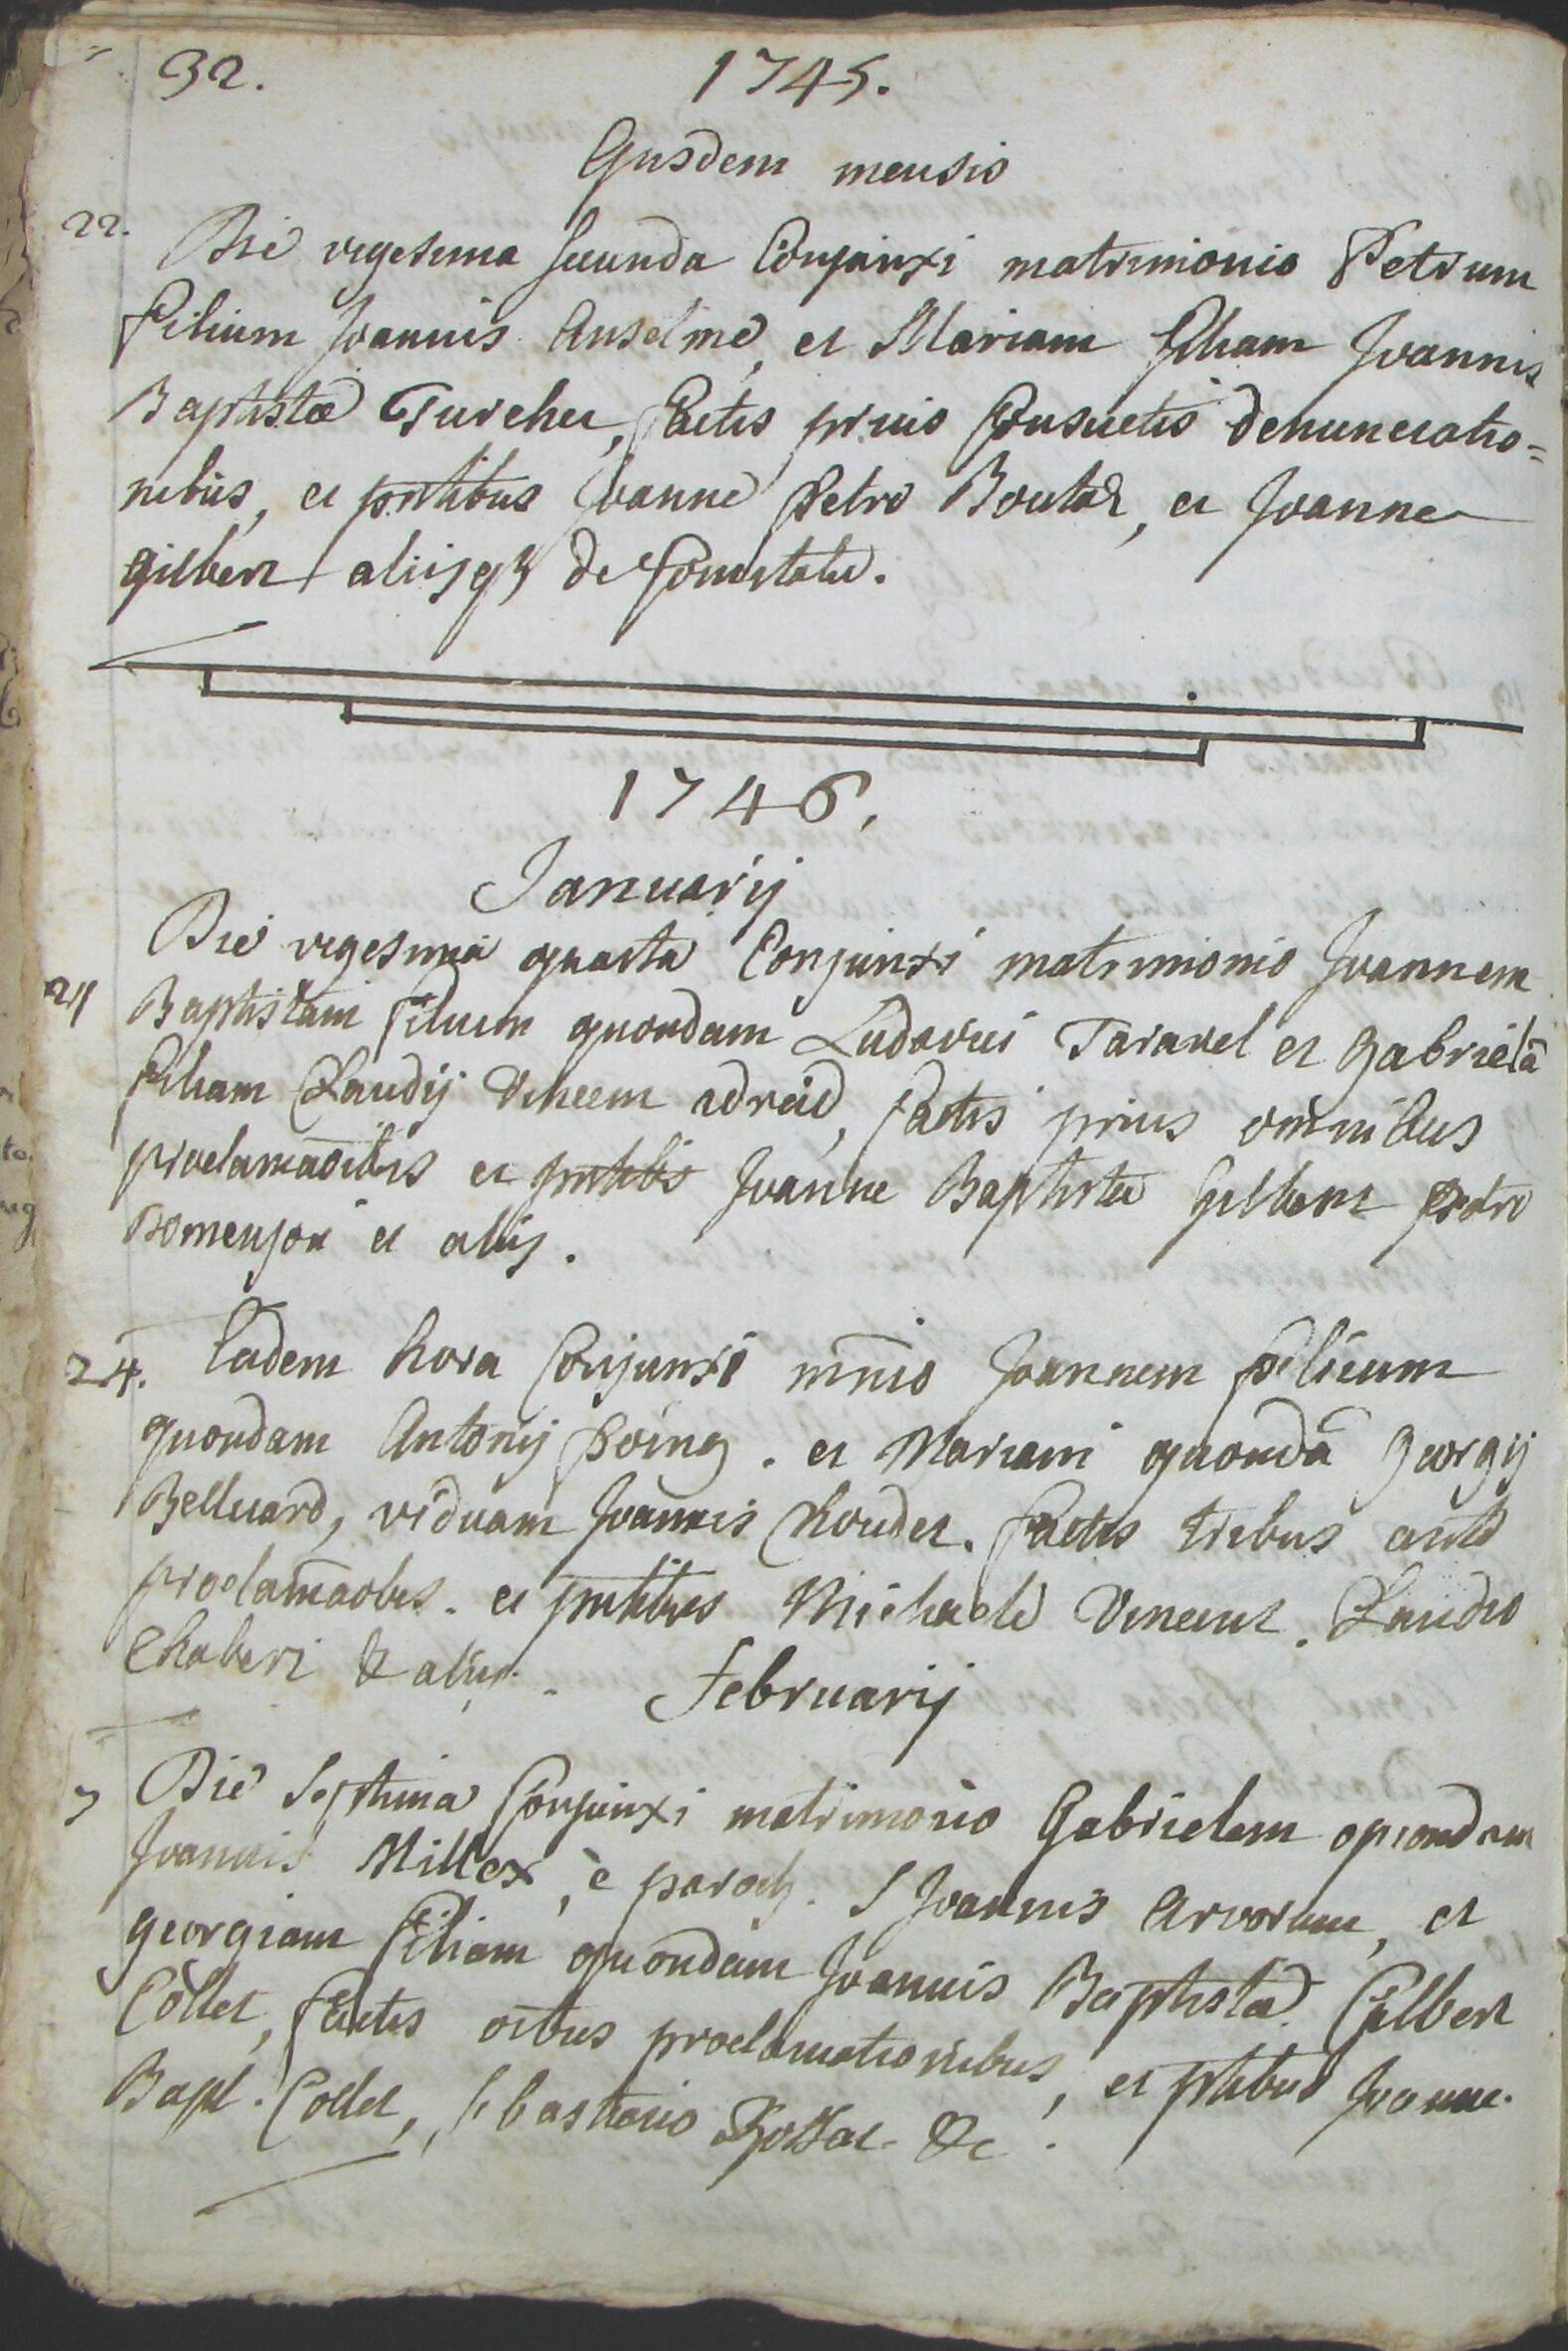 32. 1745.
Ejusdem mensis
22. Die vigesima secunda Conjunxi matrimonio Petrum
filium Joannis Anselme, et Mariam filiam Joannis
Baptistæ Turcher, factis prius Consuetis denunciatio=
nibus, et pntibus Joanne Petro Boutar, et Joanne
gilbert aliisq3 de Comitatu.
1746,
Januarij
Die vigesima quarta Conjunxi matrimonio Joannem
24 Baptistam filium quondam Ludovici Taravel et Gabrielã
filiam Claudij adroid, factis prius omnibus
proclamaõibus et pntibs Joanne Baptista Gilbert petro
Domenjon et aliis.
24. Eadem hora Conjunxi mñio Joannem filium
quondam Antonij Poing. et Mariam quondã Georgij
Belluard, viduam Joannis Choudet. factis tribus ante
proclamaõbus. et pntibus Michaele Vincent. Claudio
Chaberi & aliis.
Februarij
7 Die Septima Conjunxi matrimonio Gabrielem quondam
Joannis Millex, è paroch. S Joannis Arvorum, et
georgiam filiam quondam Joannis Baptistæ Gilbert
Collet, factis oibus proclamationibus, et ptibus Joanne.
Bapt. Collet, Sebastiano &c.